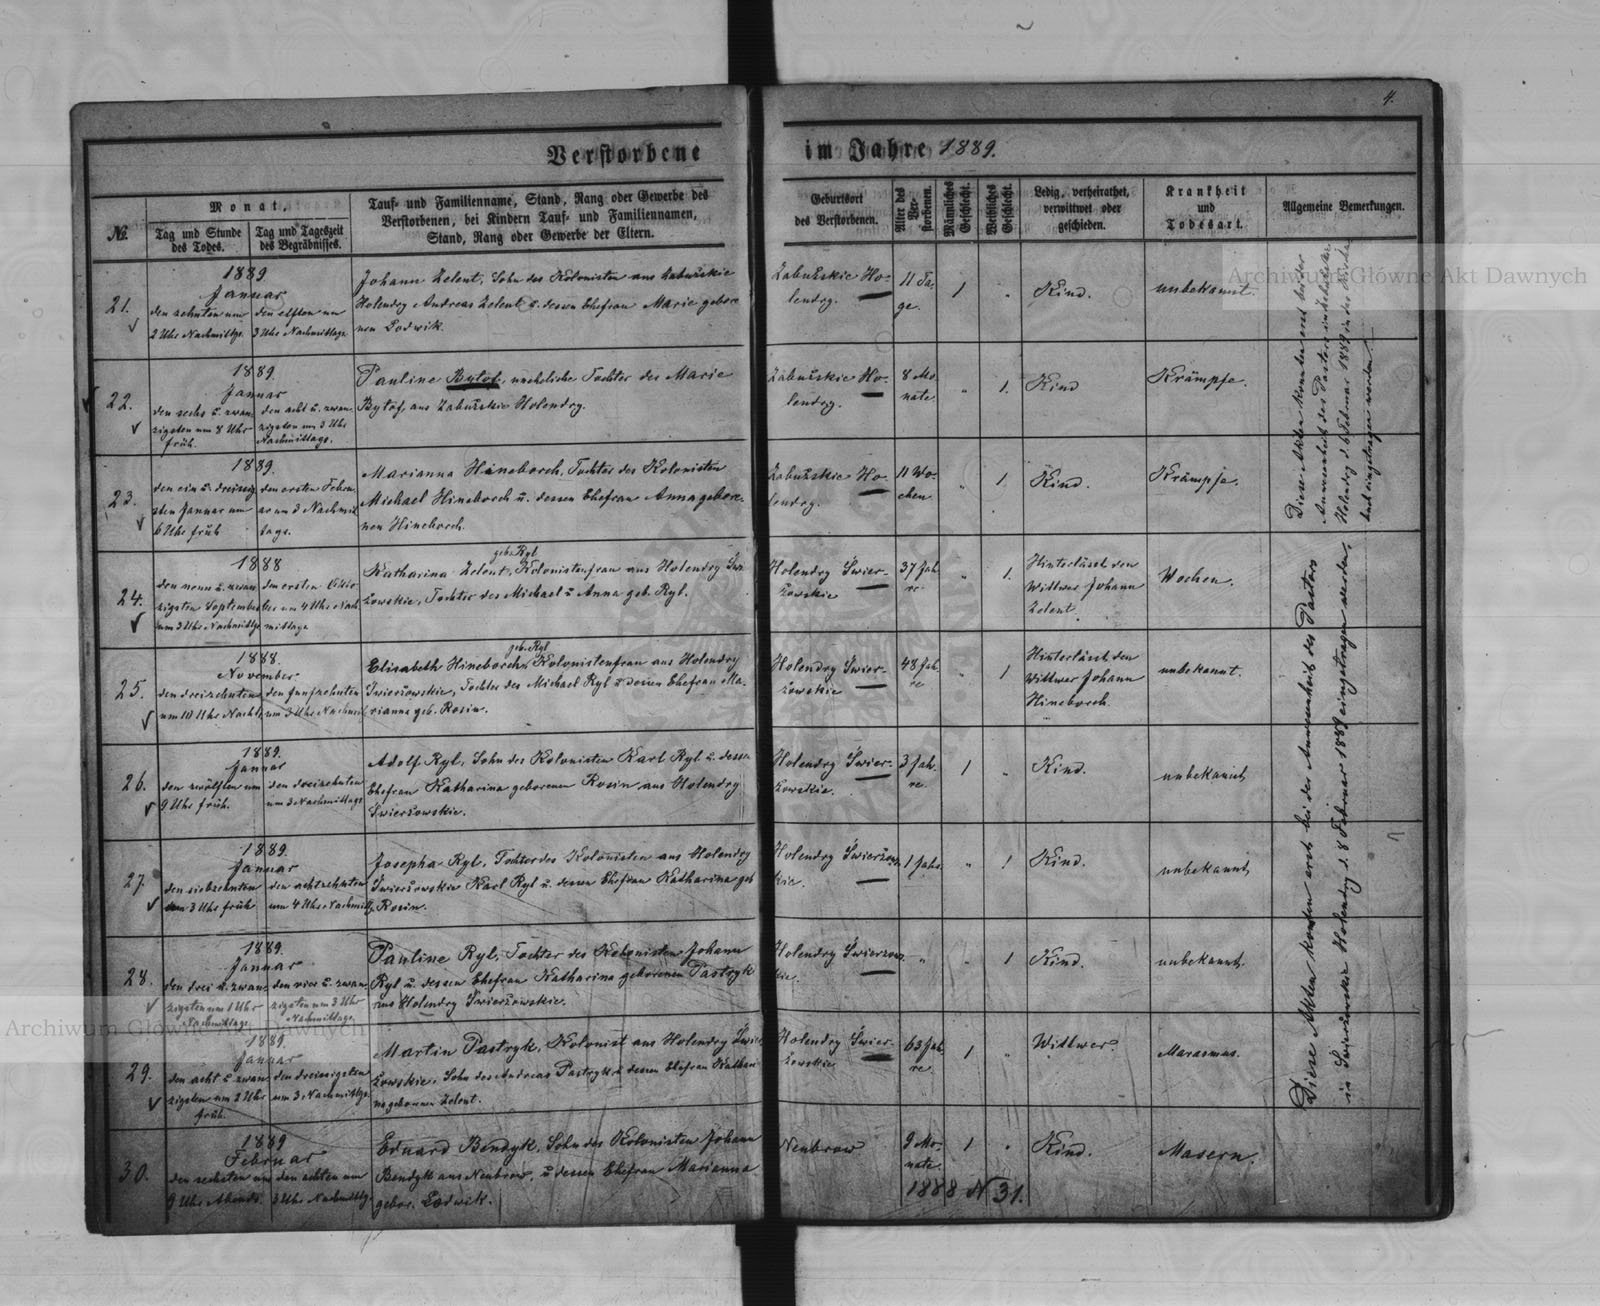 4.
Verstorbene im Jahre 1889.
№.
Monat,
Tag und Stunde des Todes.
Tag und Tageszeit des Begräbnisses.
Tauf- und Familienname, Stand, Rang oder Gewerbe des
Verstorbenen, bei Kindern Tauf- und Familiennamen,
Stand, Rang oder Gewerbe der Eltern.
Geburtsort
des Verstorbenen.
Alter des Verstorbenen.
Männliches Geschlecht.
Weibliches Geschlecht.
Ledig, verheirathet,
verwittwet oder
geschieden.
Krankheit
und
Todesart.
Allgemeine Bemerkungen.
21.
1889
Januar
den zehnten um
2 Uhr Nachmittgs.
den elften um
3 Uhr Nachmittags
Johann Zelent, Sohn des Kolonisten aus Zabużskie
Holendry Andreas Zelent u. dessen Ehefrau Marie gebore
nen Lodwik.
Zabużskie Ho-
lendry.
11 Ta-
ge.
1
"
Kind.
unbekannt
22.
1889.
Januar
den sechs u. zwan
zigsten um 8 Uhr
früh.
den acht u. zwan
zigsten um 3 Uhr
Nachmittags.
Pauline Bytof, uneheliche Tochter der Marie
Bytof, aus Zabużskie Holendry.
Zabużskie Ho-
lendry.
8 Mo
nate
"
1.
Kind
Krämpfe.
23.
1889.
den ein u. dreissig
sten Januar um
6 Uhr früh
den ersten Febru
ar um 3 Nachmit
tags.
Marianna Hineborch, Tochter des Kolonisten
Michael Hineborch u. dessen Ehefrau Anna gebore-
nen Hineborch.
Zabużskie Ho-
lendry.
11 Wo-
chen.
"
1.
Kind.
Krämpfe.
24.
1888
den neun u. zwan
zigsten September
um 3 Uhr Nachmittgs
den ersten Okto
ber um 4 Uhr Nach
mittags
geb. Ryl
Katharina Zelent, Kolonistenfrau aus Holendry Swier
żowskie, Tochter des Michael u Anna geb. Ryl.
Holendry Swier-
żowskie
37 Jah
re
"
1.
Hinterlässt den
Wittwer Johann
Zelent.
Wochen.
25.
1888.
November
den dreizehnten
um 10 Uhr Nachts
den funfzehnten
um 3 Uhr Nachmit
geb. Ryl
Elisabeth Hineborch, Kolonistenfrau aus Holendry
Swierżowskie, Tochter des Michael Ryl u dessen Ehefrau Ma-
rianna geb. Rosin.
Holendry Swier-
żowskie
48 Jah
re
"
1
Hinterlässt den
Wittwer Johann
Hineborch.
unbekannt.
26.
1889.
Januar
den zwölften um
9 Uhr früh.
den dreizehnten
um 3 Nachmittags
Adolf Ryl, Sohn des Kolonisten Karl Ryl u. dessen
Ehefrau Katharina geborenen Rosin aus Holendry
Swierżowskie.
Holendry Swier-
żowskie.
3 Jah-
re
1
"
Kind.
unbekannt
27.
1889.
Januar
den siebzehnten
um 3 Uhr früh
den achtzehnten
um 4 Uhr Nachmittg.
Josepha Ryl, Tochter des Kolonisten aus Holendry
Swierżowskie Karl Ryl u. dessen Ehefrau Katharina geb
Rosin.
Holendry Swierżows-
kie.
1 Jahr
"
1
Kind.
unbekannt
28.
1889.
Januar
den drei u. zwan
zigsten um 1 Uhr
Nachmittags
den vier u. zwan
zigsten um 3 Uhr
Nachmittags.
Pauline Ryl, Tochter des Kolonisten Johann
Ryl u. dessen Ehefrau Katharina geborenen Pastryk
aus Holendry Swierżowskie.
Holendry Swierżows-
kie.
"
"
1
Kind.
unbekannt.
29.
1889.
Januar
den acht u. zwan
zigsten um 2 Uhr
früh.
den dreissigsten
um 3 Nachmittgs.
Martin Pastryk, Kolonist aus Holendry Swier
żowskie, Sohn des Andreas Pastryk u dessen Ehefrau Kathari
na geborenen Zelent.
Holendry Swier-
żowskie
63 Jah
re
1
"
Wittwer.
Marasmus.
30.
1889
Februar
den sechsten um
9 Uhr Abends.
den achten um
3 Uhr Nachmittg.
Eduard Bendyk, Sohn des Kolonisten Johann
Bendyk aus Neubrow, u dessen Ehefrau Marianna
gebor. Lodwik.
Neubrow
9 Mo-
nate.
1
"
Kind.
Masern.
1888 N 31.
Diese Akten konnten erst bei der
Anwesenheit des Pastors in Zabużskie
Holendry d. 6 Februar 1889 in das Kirchen
buch eingetragen werden.
Diese Akten konten erst bei der Anwesenheit des Pastors
in Swierżowskie Holendry d. 8 Februar 1889 eingetragen werden.
Archiwum Główne Akt Dawnych
Archiwum Główne Akt Dawnych